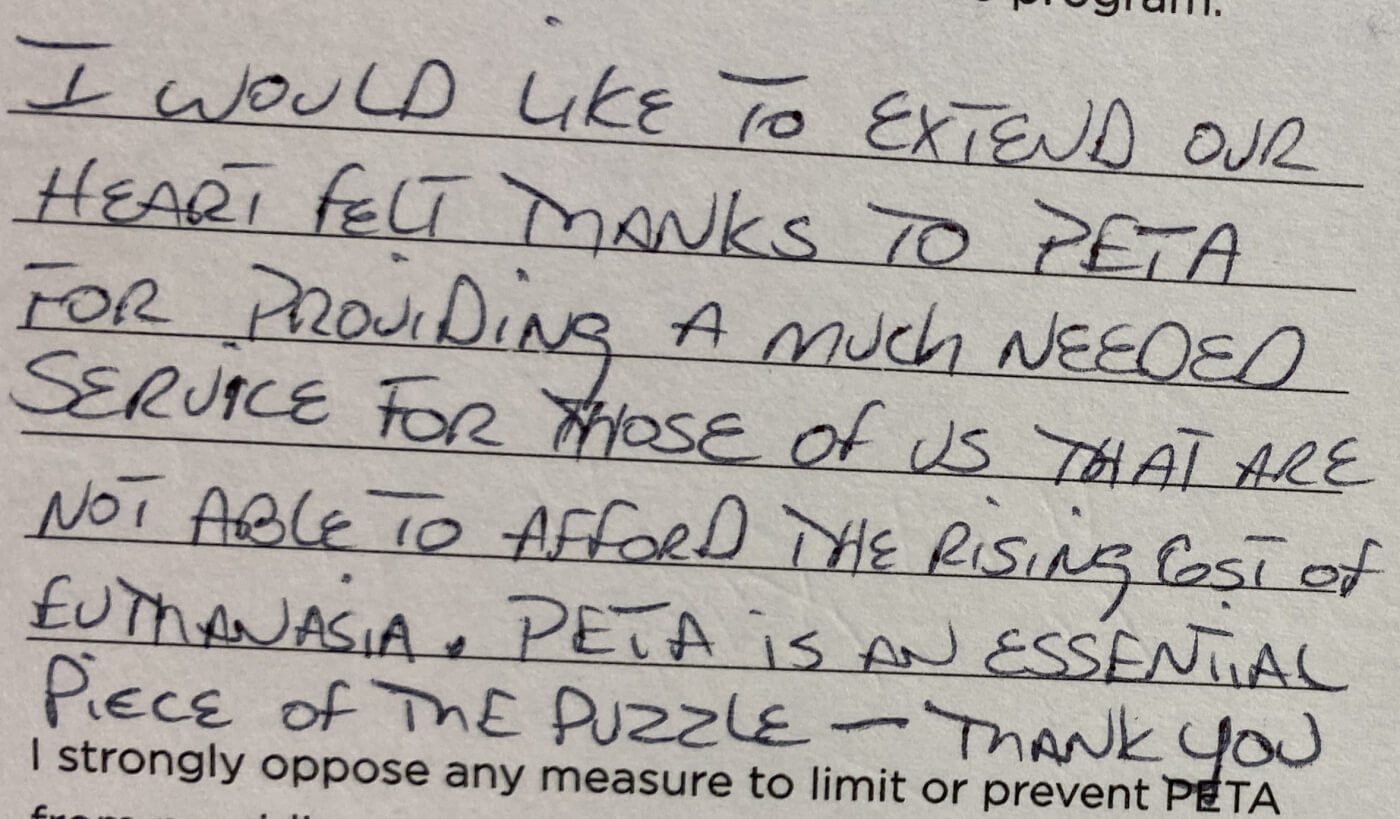 program.
I WOULD LIKE TO EXTEND OUR
HEART FELT THANKS TO PETA
FOR PROVIDING A MUCH NEEDED
SERVICE FOR THOSE OF US THAT ARE
NOT ABLE TO AFFORD THE RISING COST OF
EUTHANASIA. PETA IS AN ESSENTIAL
PIECE OF THE PUZZLE — THANK YOU
I strongly oppose any measure to limit or prevent PETA